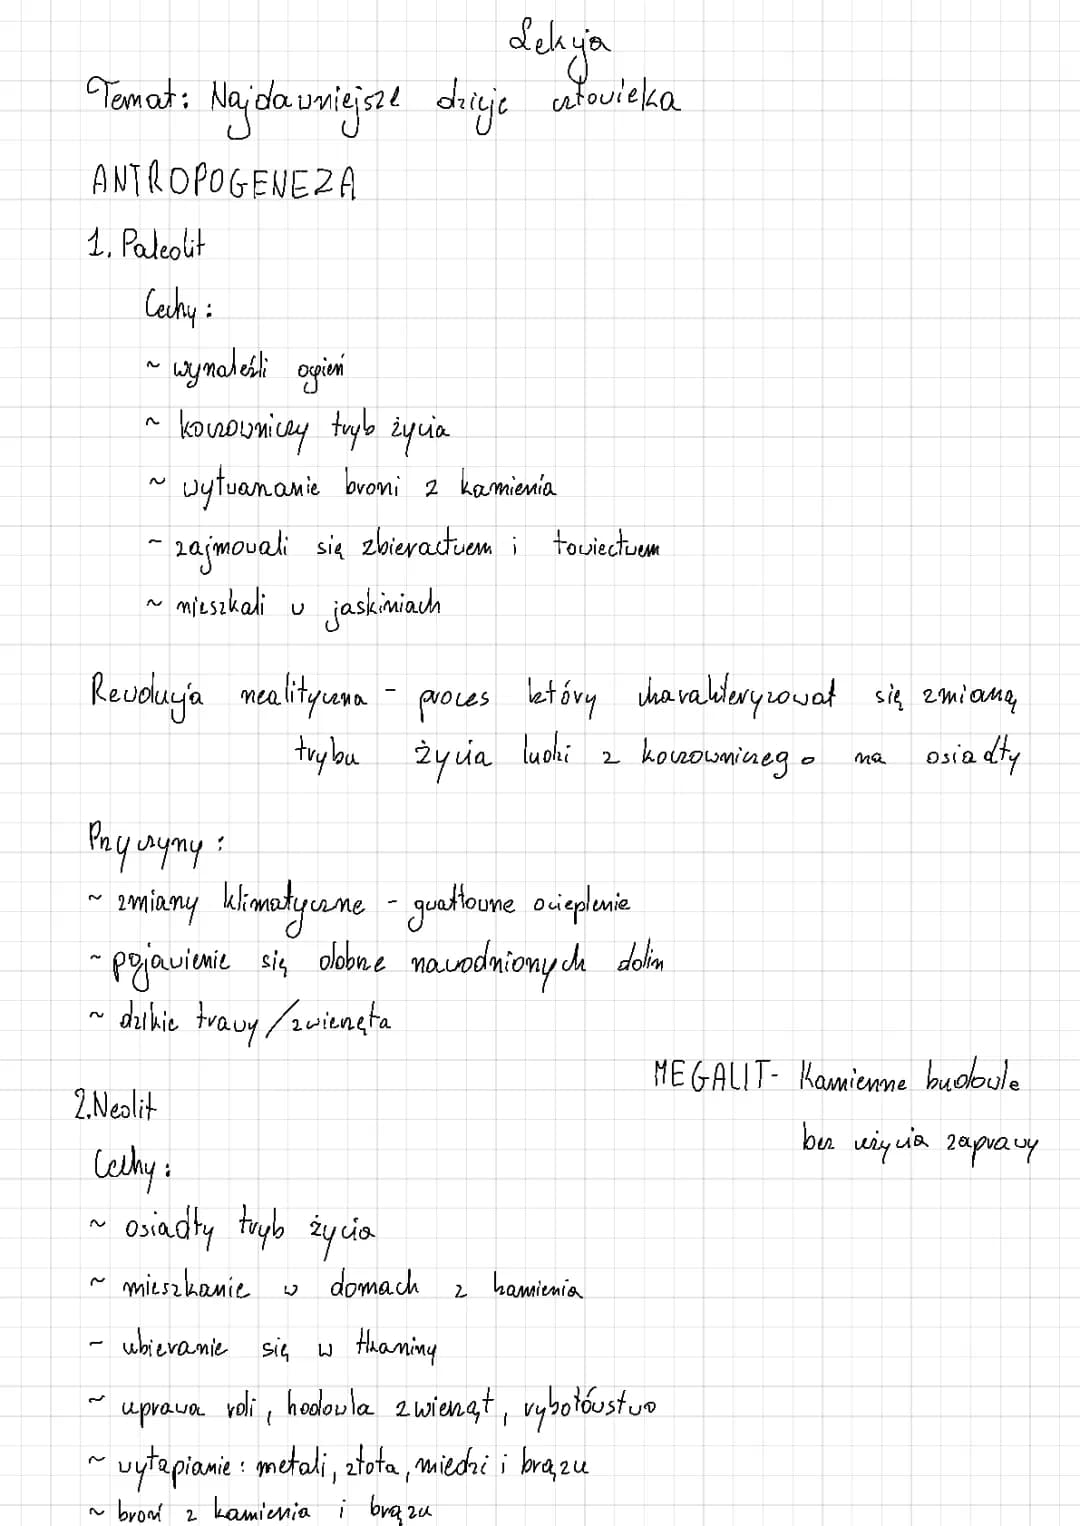 Lekcja
Temat: Najdawniejsze dzieje człowieka
ANTROPOGENEZA
1. Paleolit
Cechy:
~ wynaleźli ogień
~ koczowniczy tryb życia
~ wytwarzanie broni z kamienia
~ zajmowali się zbieractwem i łowiectwem
~ mieszkali w jaskiniach
Rewolucja nealityczna - proces który charakteryzował się zmianą
trybu życia ludzi z koczowniczego na osiadły
Przyczyny:
~ zmiany klimatyczne - gwałtowne ocieplenie
~ pojawienie się dobrze nawodnionych dolin
~ dzikie trawy/zwierzęta
MEGALIT- Kamienne budowle
bez użycia zaprawy
2. Neolit
Cechy:
~ osiadły tryb życia
~ mieszkanie w domach z kamienia
- ubieranie się w tkaniny
~ uprawa roli, hodowla zwierząt, rybołówstwo
~ wytapianie: metali, złota, miedzi i brązu
~ broń z kamienia i brązu